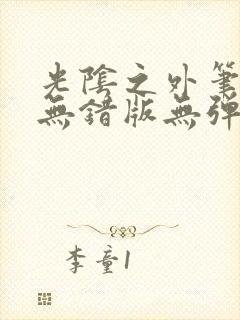 光陰之外筆
無錯版無彈
李童1